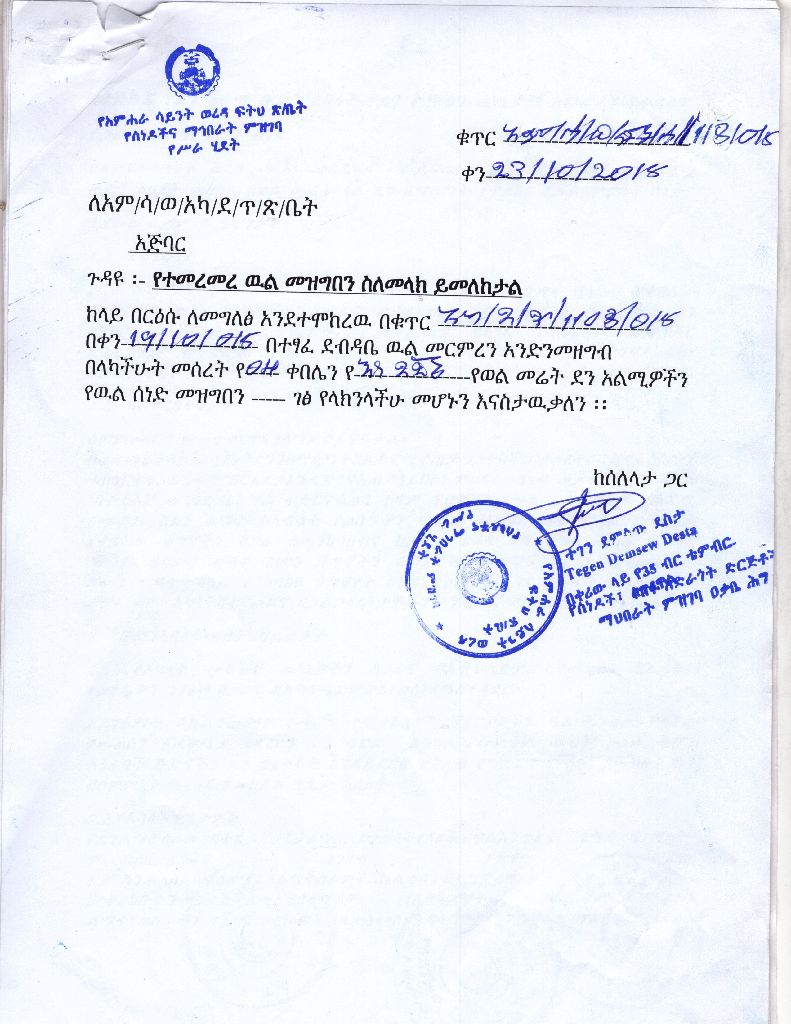 የአምሐራ ሳይንት ወረዳ ፍትህ ጽ/ቤት
የሰነዶችና ማኅበራት ምዝገባ
የሥራ ሂደት
ቁጥር
ቀን 23/10/2015
ለአም/ሳ/ወ/አካ/ደ/ጥ/ጽ/ቤት
አጅባር
ጉዳዩ ፡- የተመረመረ ዉል መዝግበን ስለመላክ ይመለከታል
ከላይ በርዕሱ ለመግለፅ እንደተሞከረዉ በቁጥር
በቀን 19/10/015 በተፃፈ ደብዳቤ ዉል መርምረን እንድንመዘግብ
በላካችሁት መሰረት የ04 ቀበሌን የ የወል መሬት ደን አልሚዎችን
የዉል ሰነድ መዝግበን ----- ገፅ የላክንላችሁ መሆኑን እናስታዉቃለን ፡፡
ከሰለላታ ጋር
ተገን ደምሰው ደስታ
Tegen Demsew Desta
በቀሪው ላይ የ35 ብር ቴምብር
የሰነዶች፣ ድርጅቶች
ማህበራት ምዝገባ ዐቃቤ ሕግ